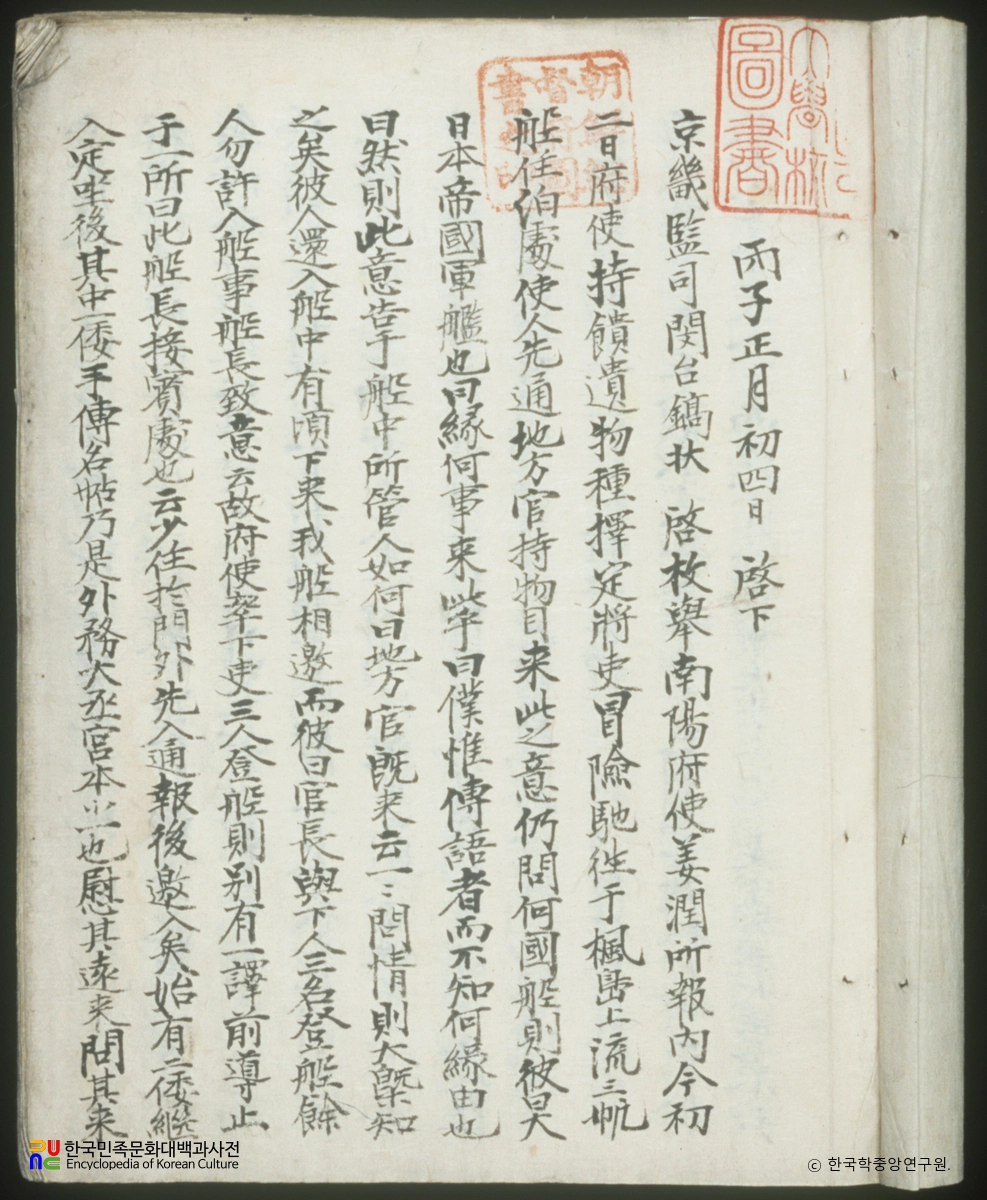 丙子正月初四日 啓下
京畿監司閔台鎬狀 啓枚擧南陽府使姜潤所報內今初
二日府使持饋遺物種擇定將吏冒險馳徃于楓島上流三帆
船住泊處使人先通地方官持物目来此之意仍問何國船則彼曰大
日本帝國軍艦也曰緣何事来此乎曰僕惟傳語者而不知何緣由也
曰然則此意告于船中所管人如何曰地方官旣来云一ミ問情則大槩知
之矣彼人還入船中有頃下来我船相邀而彼曰官長與下人三名登船餘
人勿許入船事船長致意云故府使率下吏三人登船則別有一譯前導止
于一所曰此船長接賓處也云少住於門外先入通報後邀入矣始有二倭繼
入定坐後其中一倭手傳名帖乃是外務大丞宮本小一也慰其遠来問其来
朝鮮總督府圖書之印
圖書
한국민족문화대백과사전
Encyclopedia of Korean Culture
© 한국학중앙연구원.